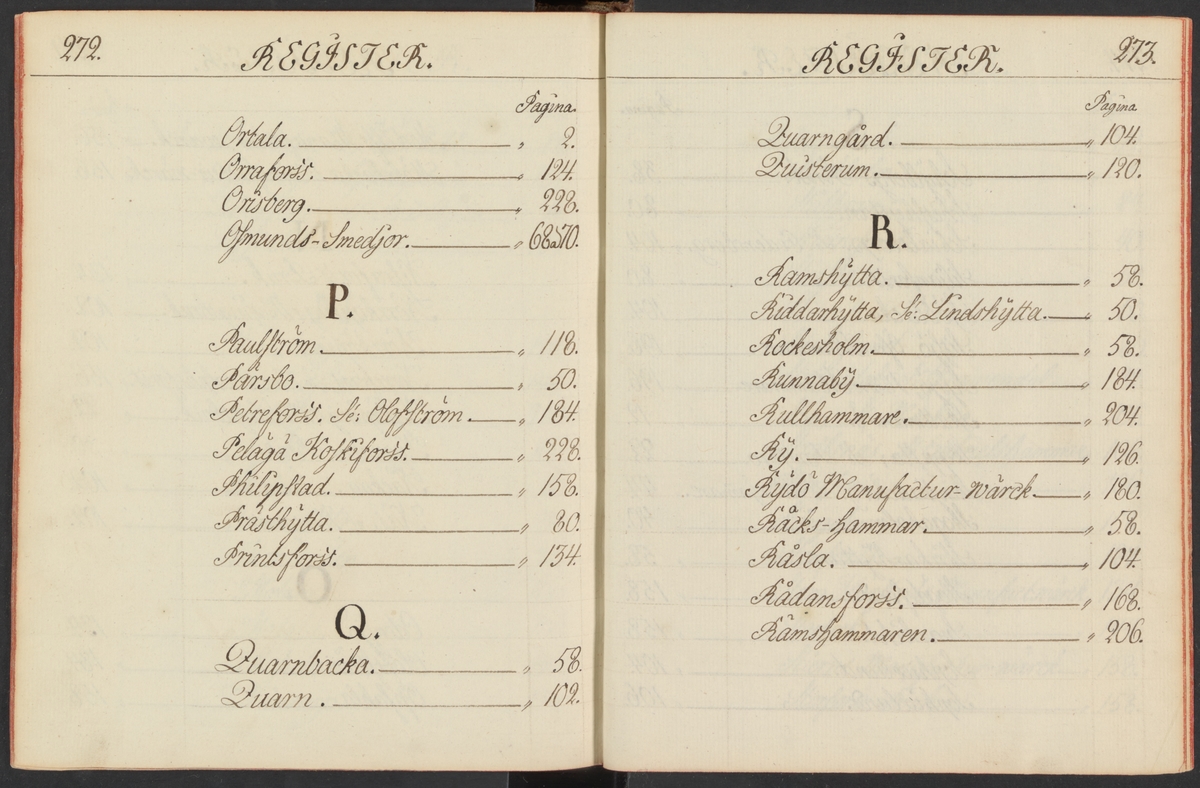 272.
REGISTER.
Pagina.
Ortala. „ 2.
Orraforss. „ 124.
Orisberg. „ 228.
Osmunds-Smedjor. „ 68 à 70.
P.
Paulström. „ 118.
Pärsbo. „ 50.
Petreforss. Sé: Olofström „ 184.
Pelägä Koskiforss. „ 228.
Philipstad. „ 158.
Prästhÿtta. „ 80.
Printsforss. „ 134.
Q.
Quarnbacka. „ 58.
Quarn. „ 102.
273.
REGISTER.
Pagina
Quarngård. „ 104.
Quisterum. „ 120.
R.
Ramshÿtta. „ 58.
Riddarhÿtta, Sé: Lindshÿtta. „ 50.
Rockesholm. „ 58.
Runnabÿ. „ 184.
Rullhammare. „ 204.
Rÿ. „ 126.
Rÿdö Manufactur-wärck. „ 180.
Räcks-hammar. „ 58.
Råsla. „ 104.
Rådansforss. „ 168.
Rämshammaren. „ 206.